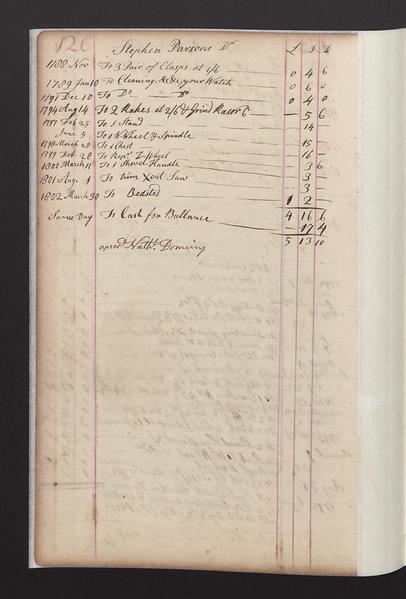 126
Stephen Parsons Dr
1788 Nov To 3 Pair of Clasps at 1/6 0 4 6
1789 Jan 10 To Cleaning, &c &c, your Watch 0 6 0
1791 Dec 10 To Do Do 0 4 0
1794 Aug 14 To 2 Rakes at 2/6 & Grind Rasor 6 5 6
Feb 25 To 1 Stand 14
June 5 To 1 N Wheel & Spindle
1798 March 28 To 1 Chest 15
1799 Feb 28 To Wheel 16
1800 March 11 To 1 Shovel Handle 3 6
1801 Aug 1 To Saw 3
1802 March 30 To Bedsted 1 2
Same Day To Cash for Ballance 4 16 6
17 4
5 13 10
Nathl Deming